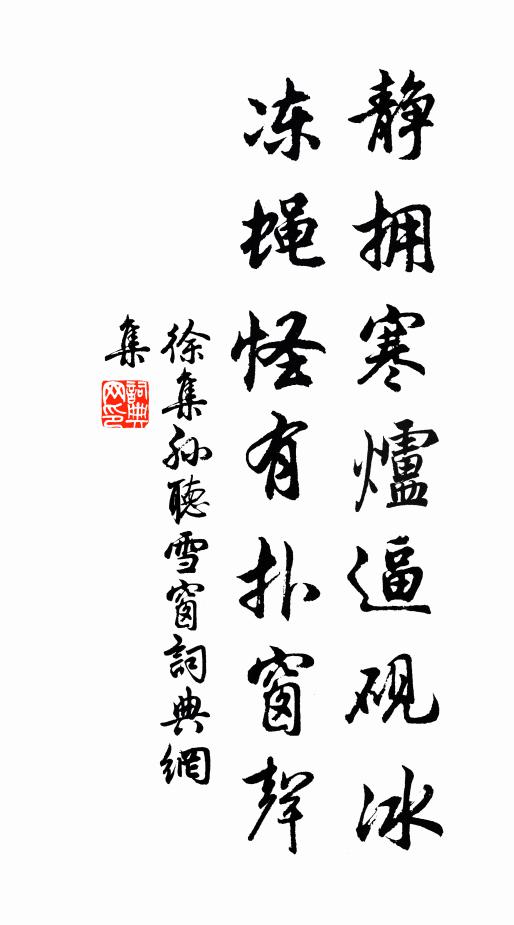 静拥寒爐逼砚冰
冻蝇怪有扑窗聲
徐集孙聽雪窗詞典網
集
詞典網印